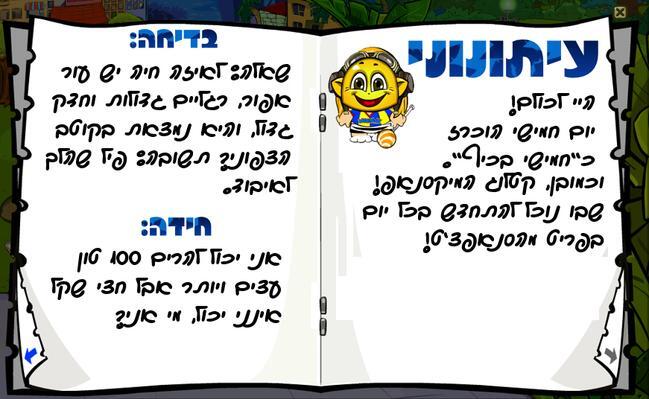 עיתונוני
היי לכולם!
יום חמישי הוכרז
כ"חמישי בכיף".
וכמובן, קטלוג המיקסנאפ!
שבו נוכל להתחדש בכל יום
בפריט מהסנאפצ'ט!
בדיחה:
שאלה: לאיזה חיה יש עור
אפור, רגליים גדולות וחדק
גדול, והיא נמצאת בקוטב
הצפוני? תשובה: פיל שהלך
לאיבוד.
חידה:
אני יכול להרים 100 טון
עצים ויותר אבל חצי שקל
אינני יכול, מי אני?